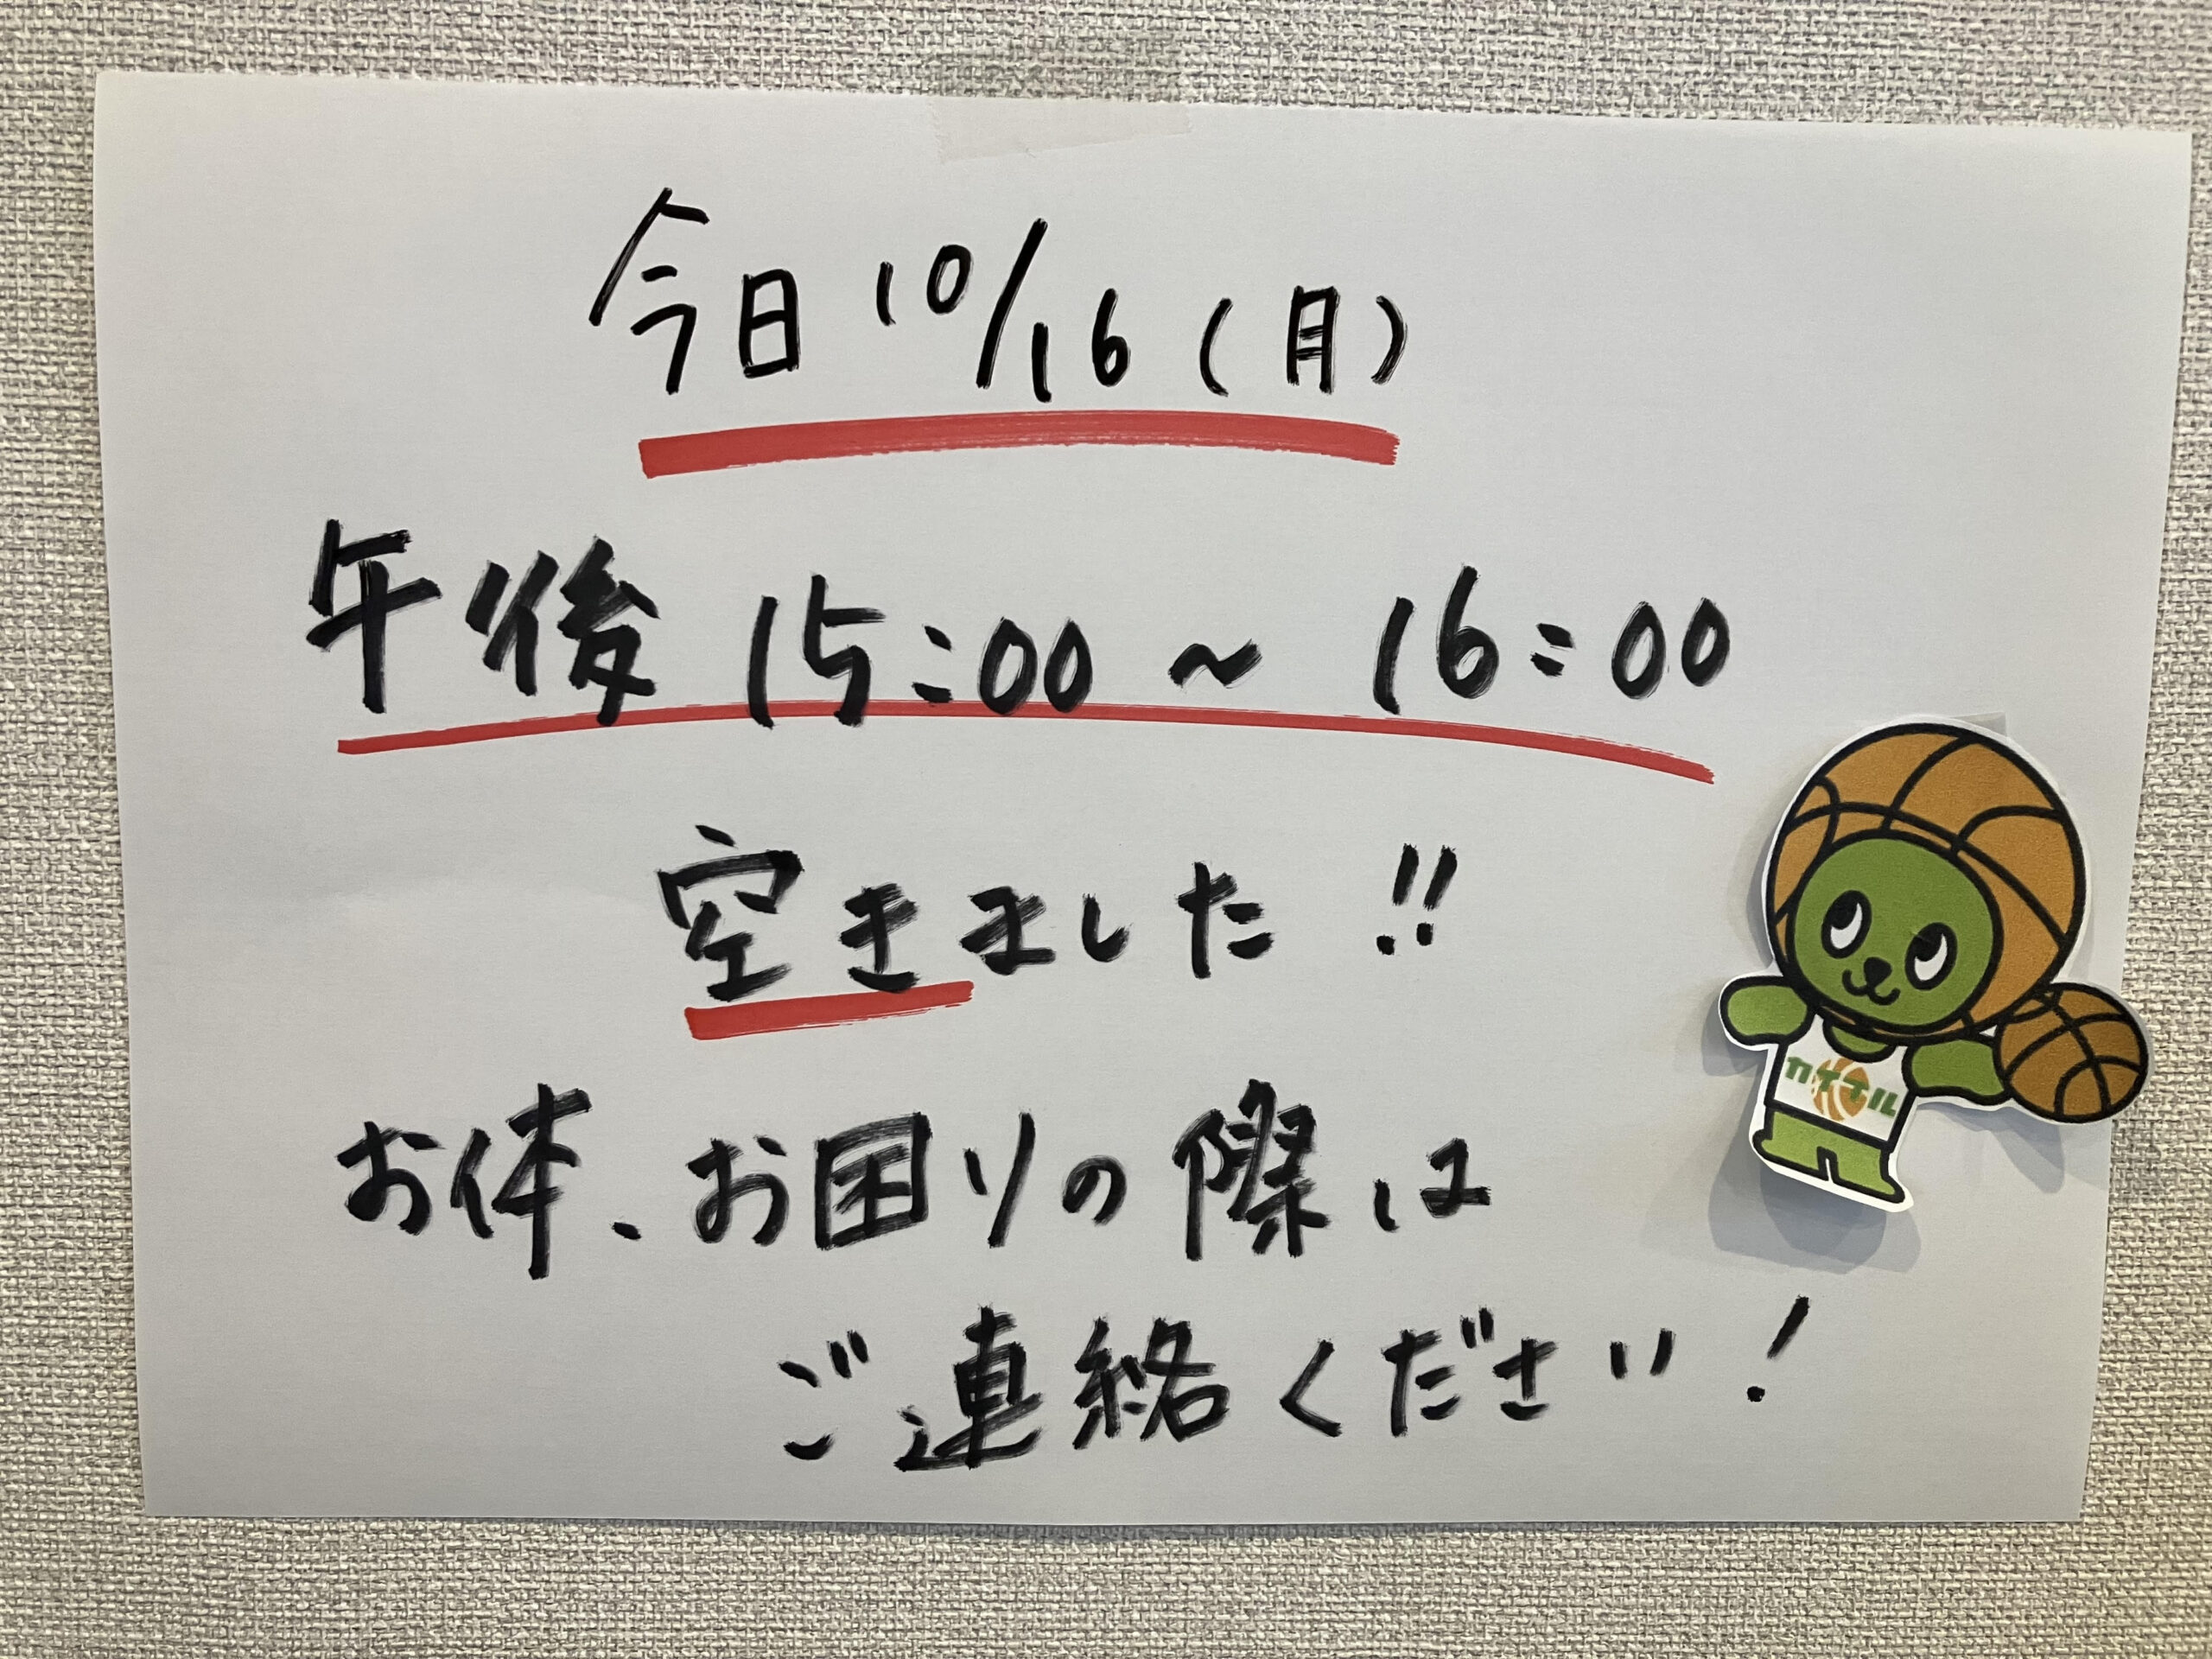 今日10/16(月)
午後15:00~16:00
空きました!!
お体、お困りの際は
ご連絡ください!
カイネル